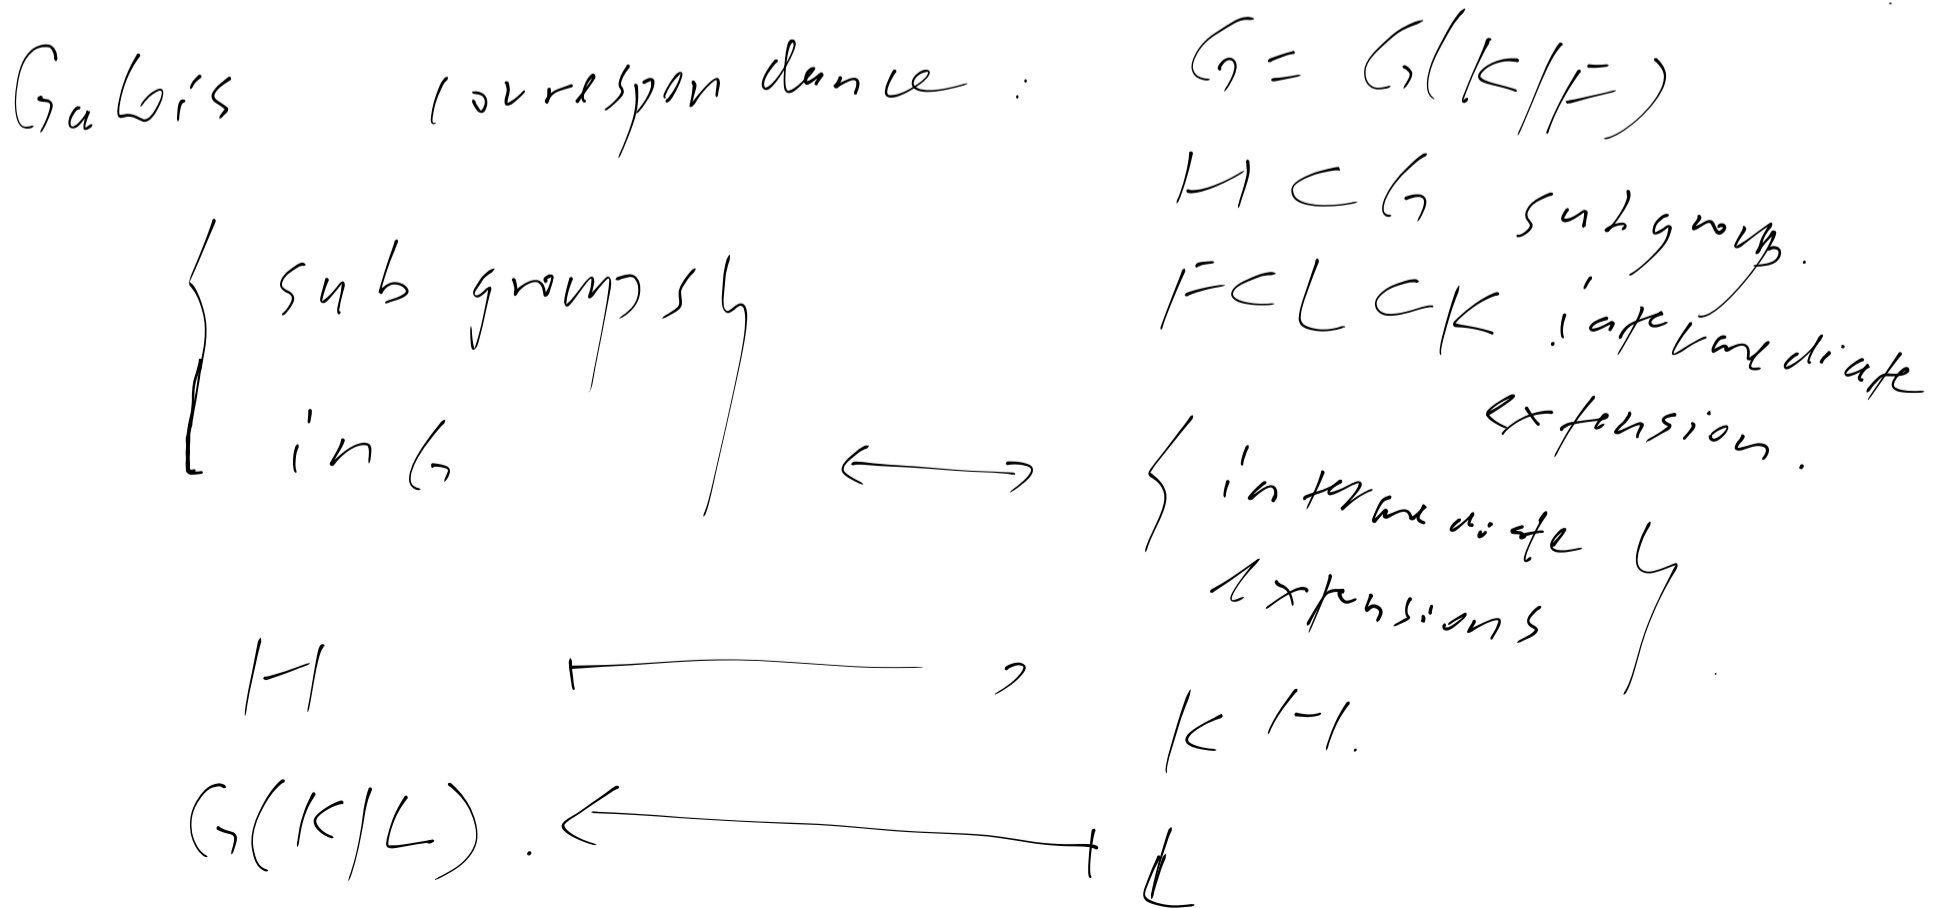 Galois correspondance : G = G(K/F)
H ⊂ G subgroup.
F ⊂ L ⊂ K intermediate
extension.
{ sub groups
in G } ↔ { intermediate
extensions }
H ⟼ K^H.
G(K/L). ⟻ L